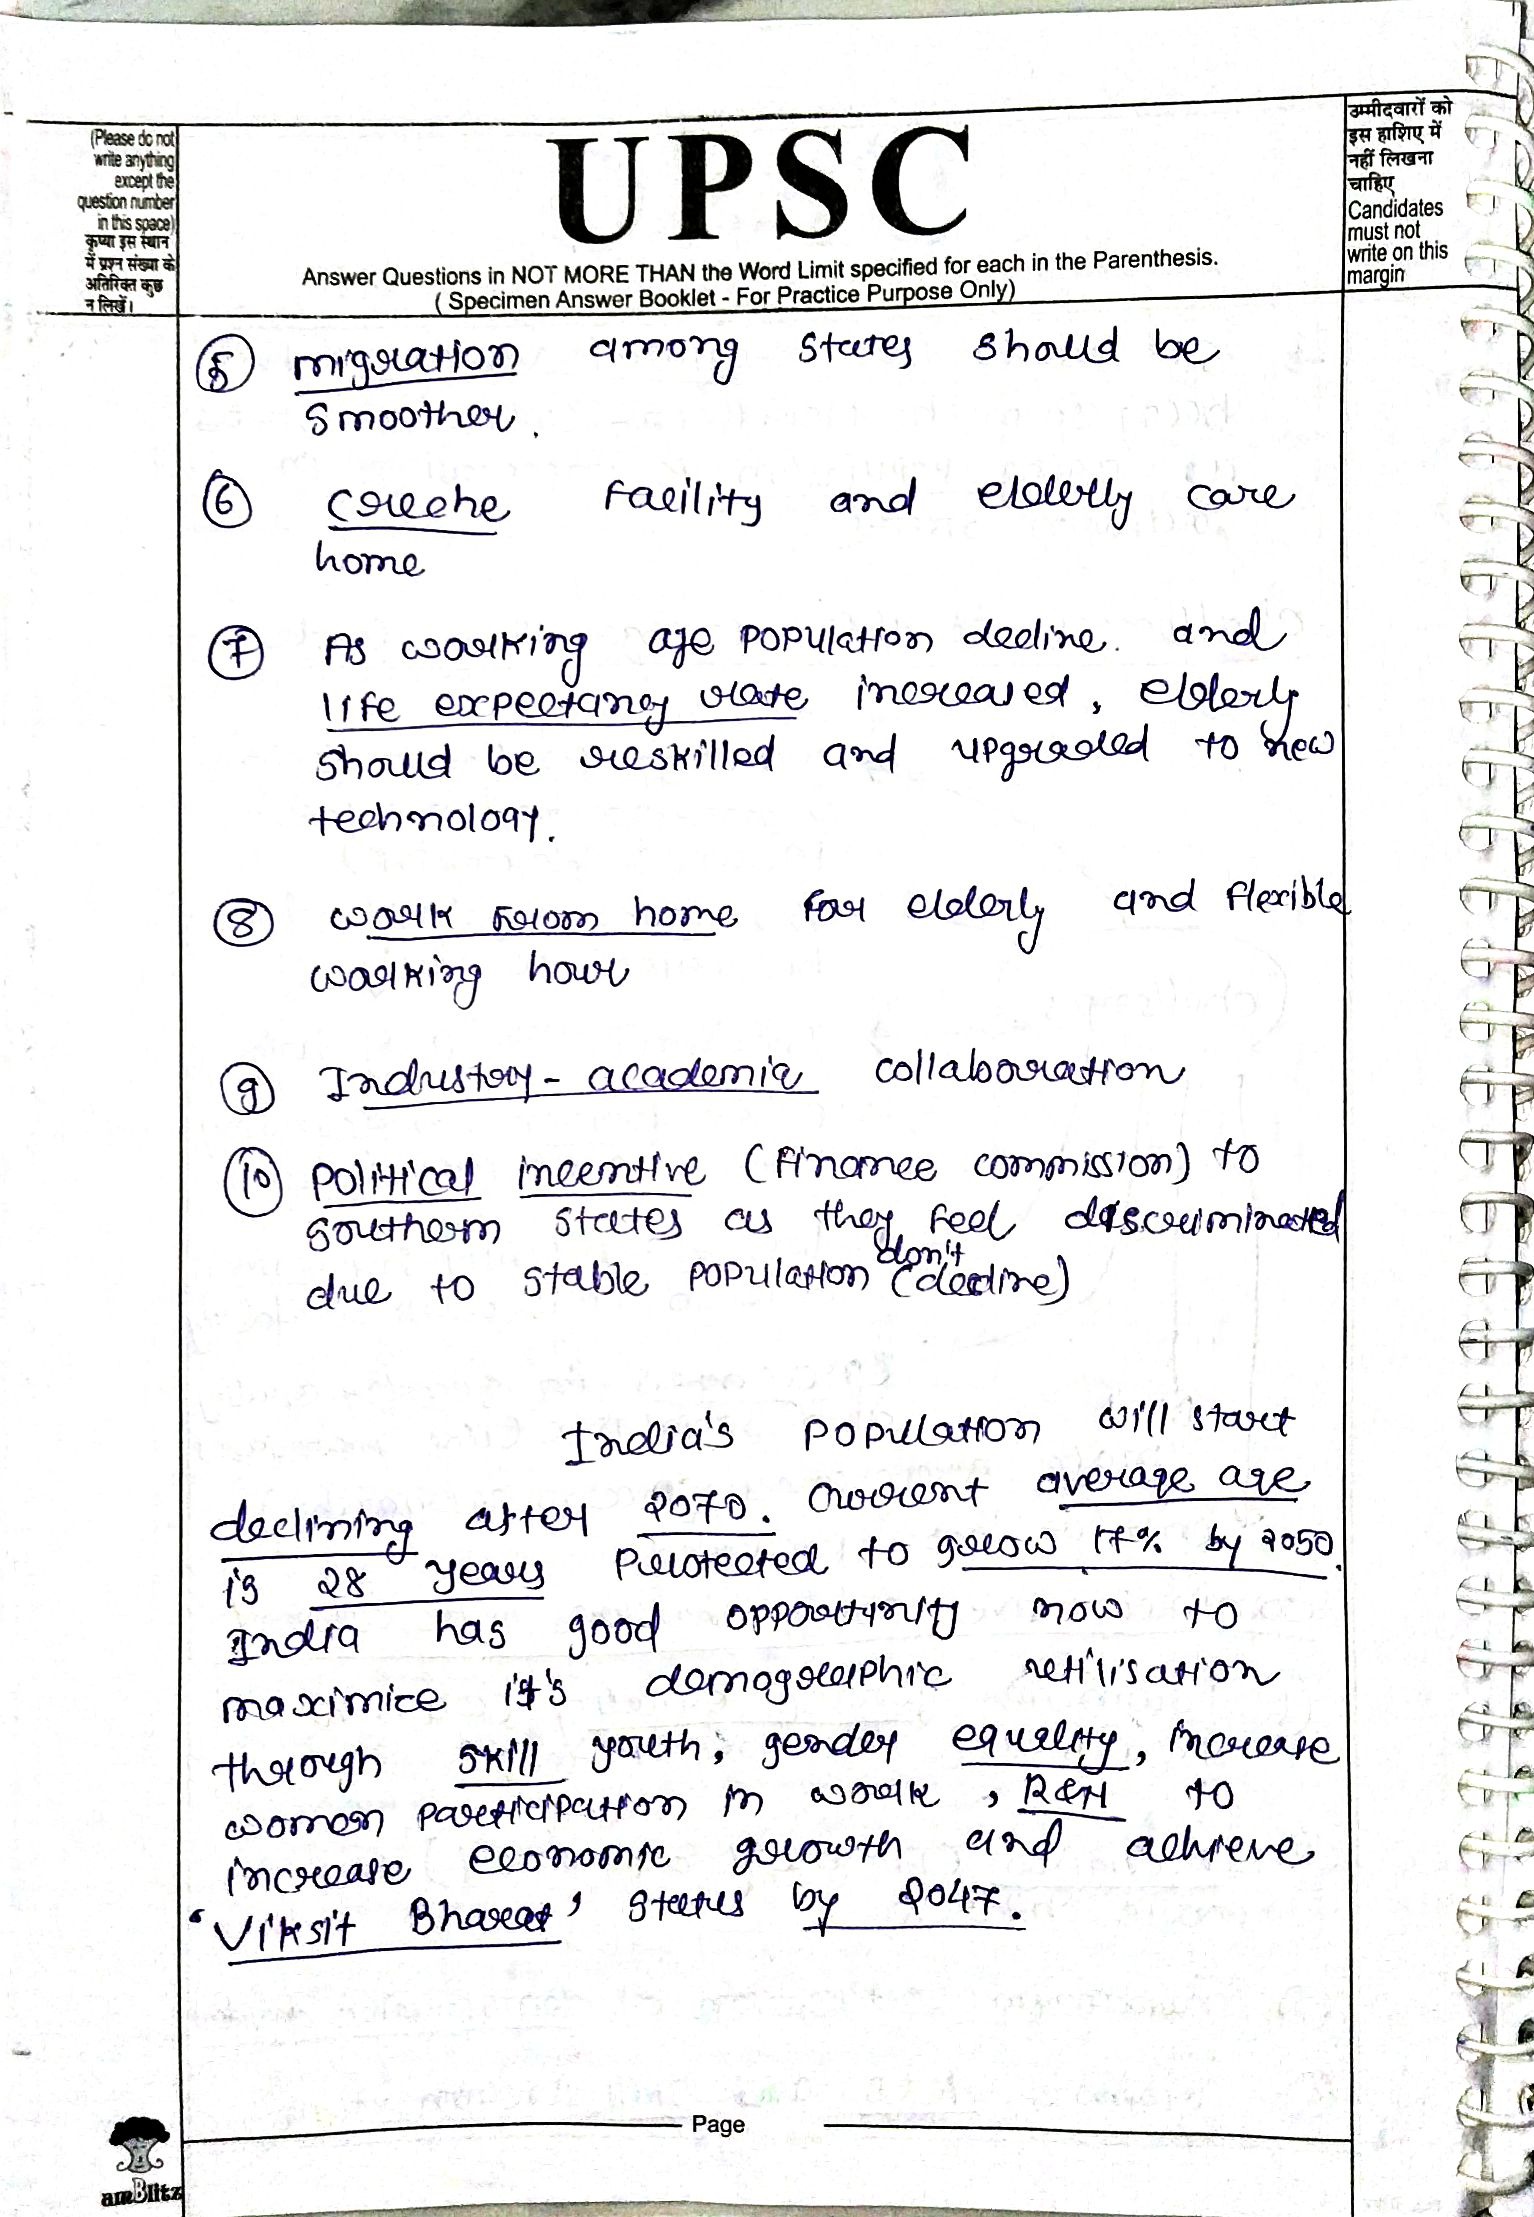 (Please do not
write anything
except the
question number
in this space)
कृप्या इस स्थान
में प्रश्न संख्या के
अतिरिक्त कुछ
न लिखें।
UPSC
Answer Questions in NOT MORE THAN the Word Limit specified for each in the Parenthesis.
( Specimen Answer Booklet - For Practice Purpose Only)
उम्मीदवारों को
इस हाशिए में
नहीं लिखना
चाहिए
Candidates
must not
write on this
margin
5 migration among states should be
smoother.
6 creche facility and elderly care
home
7 As working age population decline. and
life expectancy rate increased, elderly
should be reskilled and upgraded to new
technology.
8 work from home for elderly and flexible
working hour
9 Industry-academia collaboration
10 political incentive (finance commission) to
southern states as they feel discriminated
due to stable population (don't decline)
India's population will start
declining after 2070. current average age
is 28 years Protected to grow 17% by 2050.
India has good opportunity now to
maximice it's demographic utilisation
through skill youth, gender equality, increase
women participation in work, to
increase economic growth and achieve
'Viksit Bharat' status by 2047.
Page
amBlitz